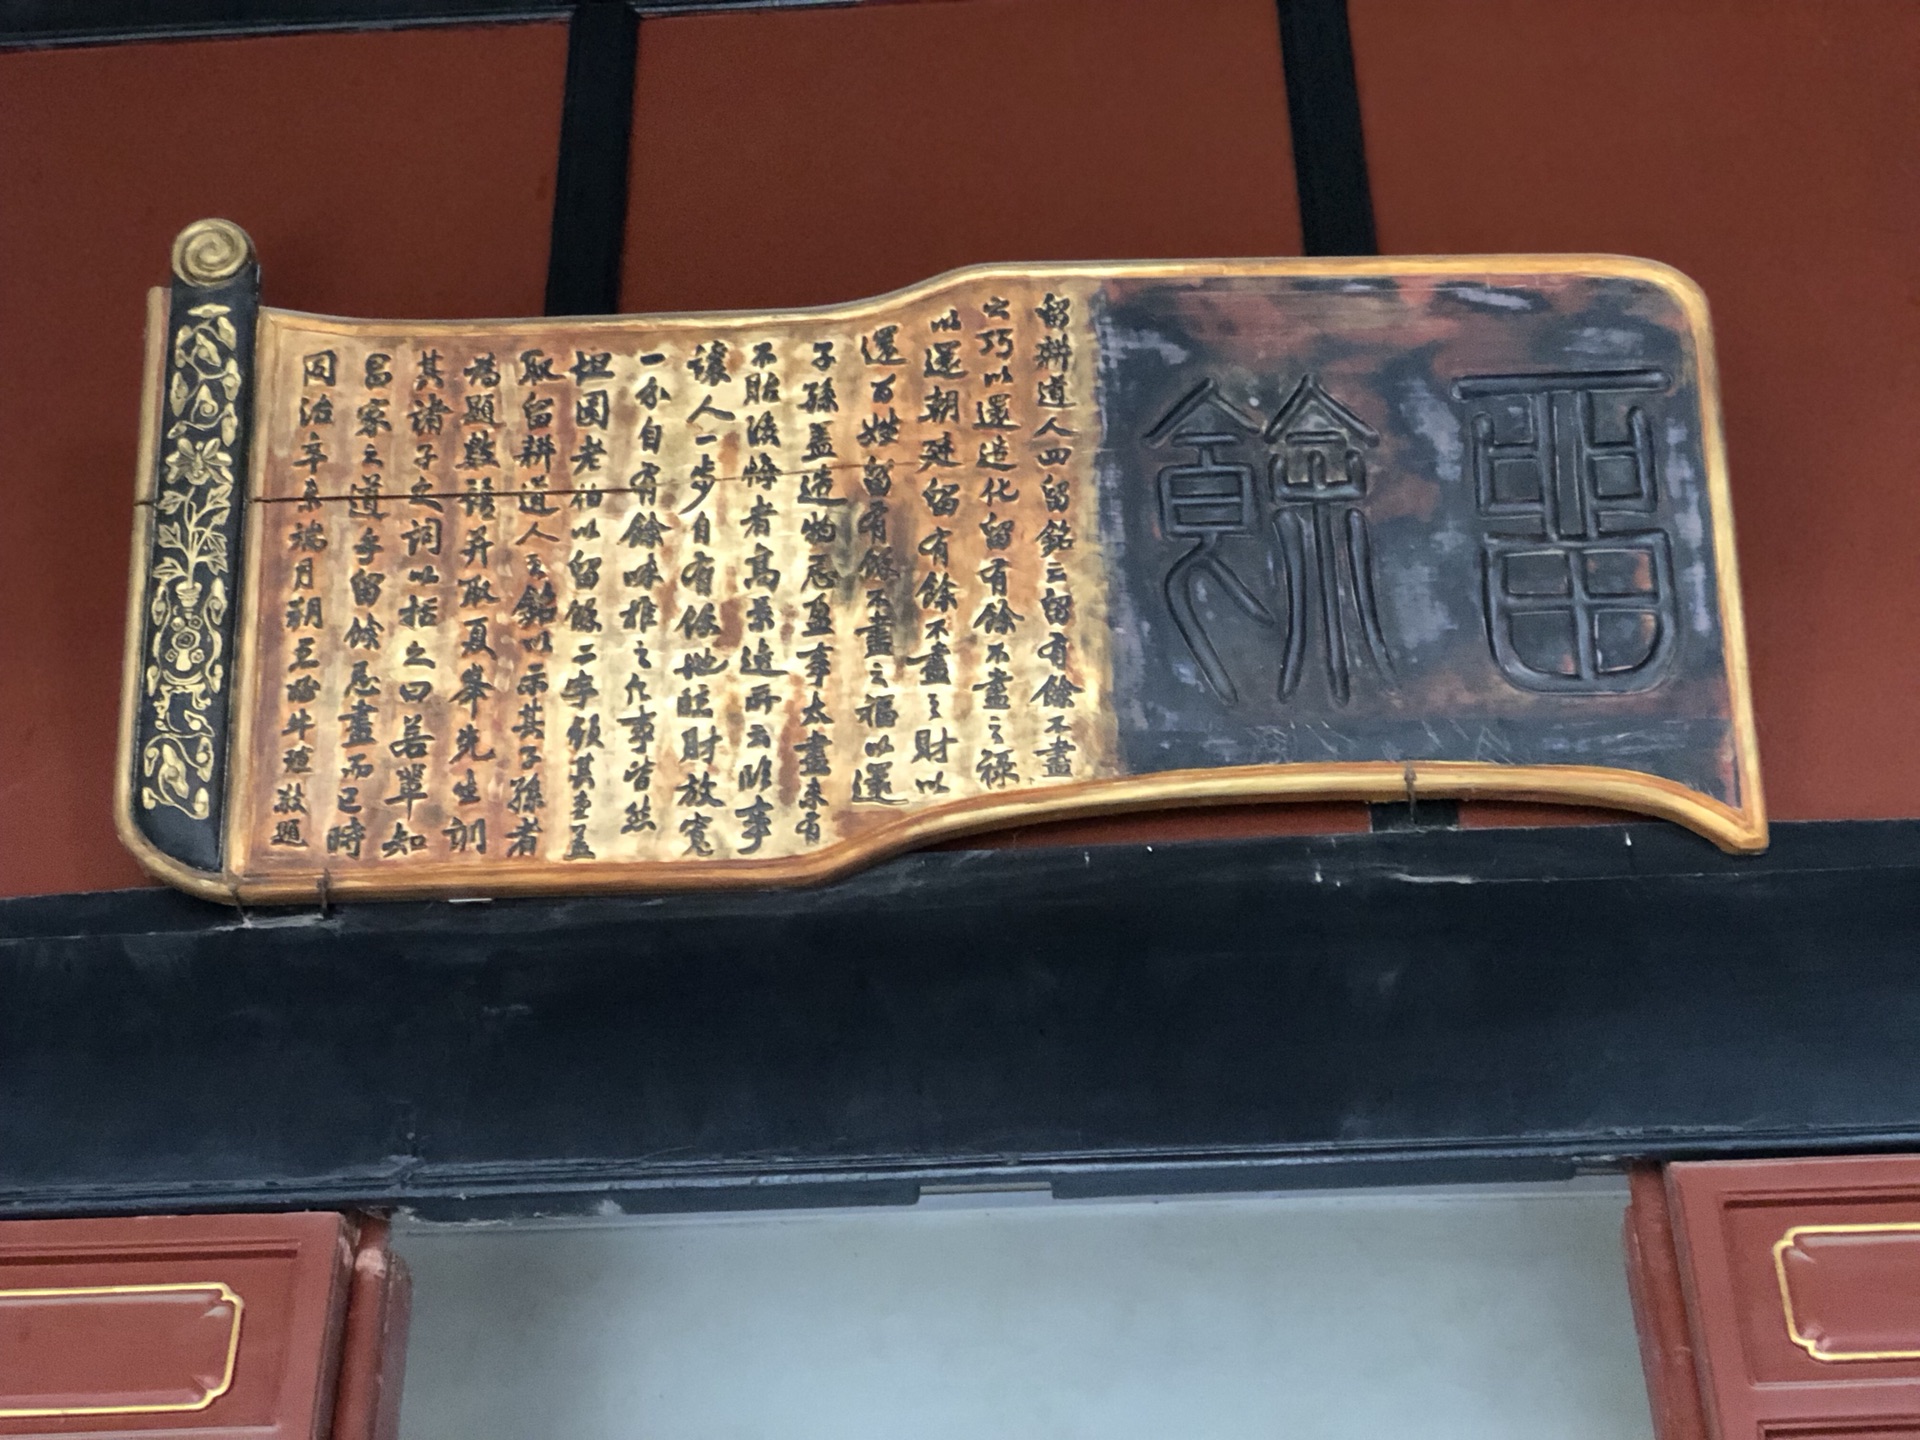 留餘
留耕道人四留銘云留有餘不盡
之巧以還造化留有餘不盡之祿
以還朝廷留有餘不盡之財以
還百姓留有餘不盡之福以還
子孫蓋造物忌盈事太盡未有
不貽後悔者高景逸所云臨事
讓人一步自有餘地臨財放寬
一分自有餘味推之凡事皆然
坦園老伯以留餘二字顏其堂蓋
取留耕道人之銘以示其子孫者
為題數語并取夏峯先生訓
其諸子之詞以括之曰若輩知
昌家之道乎留餘忌盡而已時
同治辛未端月朔 敬題